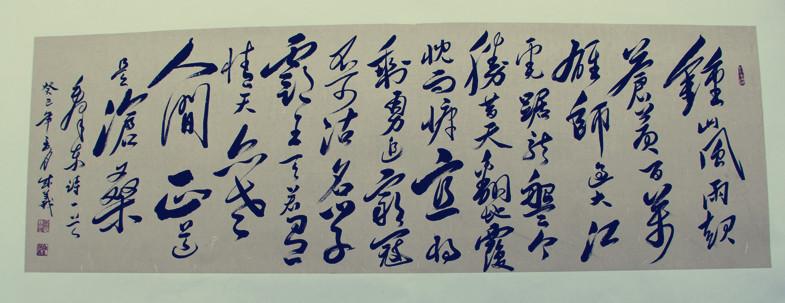 鍾山風雨起
蒼黃百萬
雄師過大江
虎踞龍盤今
勝昔天翻地覆
慨而慷宜將
剩勇追窮寇
不可沽名學
霸王天若有
情天亦老
人間正道
是滄桑
毛澤東詩一首
癸巳年月義